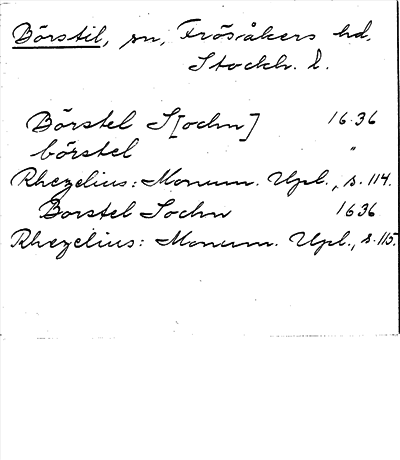 Börstil, sn, Frösåkers hd,
Stockh. l.
Börstel S[ochn] 1636
börstel "
Rhezelius: Monum. Upl., s. 114.
Borstel Sochn 1636
Rhezelius: Monum. Upl., s. 115.